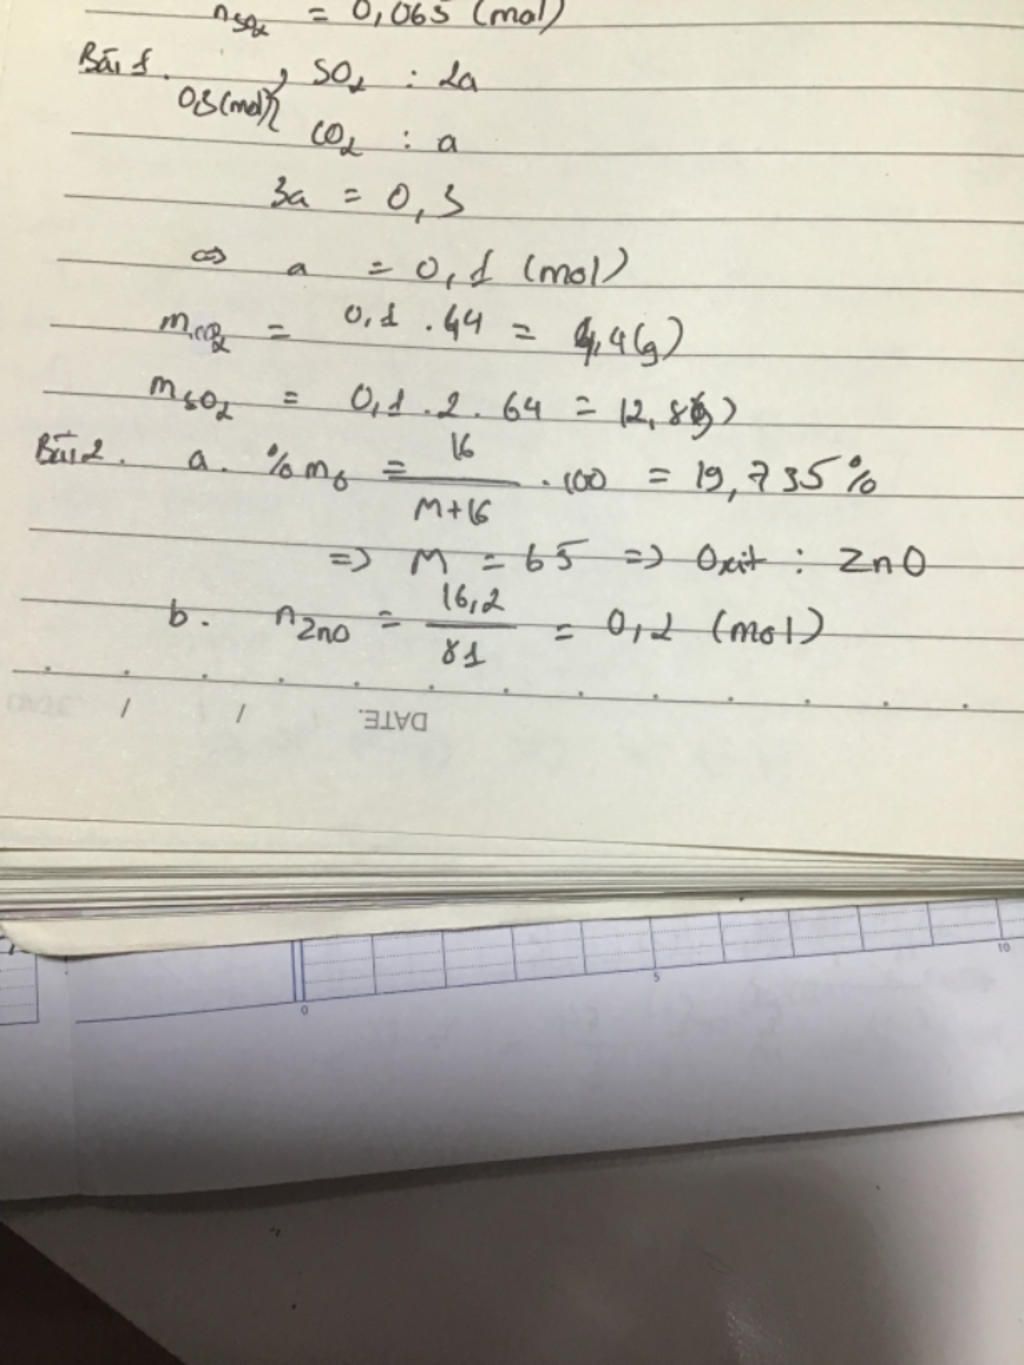 nSO2 = 0,065 (mol)
Bài 1. SO2 : 2a
0,3(mol)
CO2 : a
3a = 0,3
⇔ a = 0,1 (mol)
mCO2 = 0,1 . 44 = 4,4(g)
mSO2 = 0,1 . 2 . 64 = 12,8(g)
Bài 2. a. %mO = 16/(M+16) . 100 = 19,735%
=> M = 65 => Oxit : ZnO
b. nZnO = 16,2/81 = 0,2 (mol)
DATE.
0 5 10